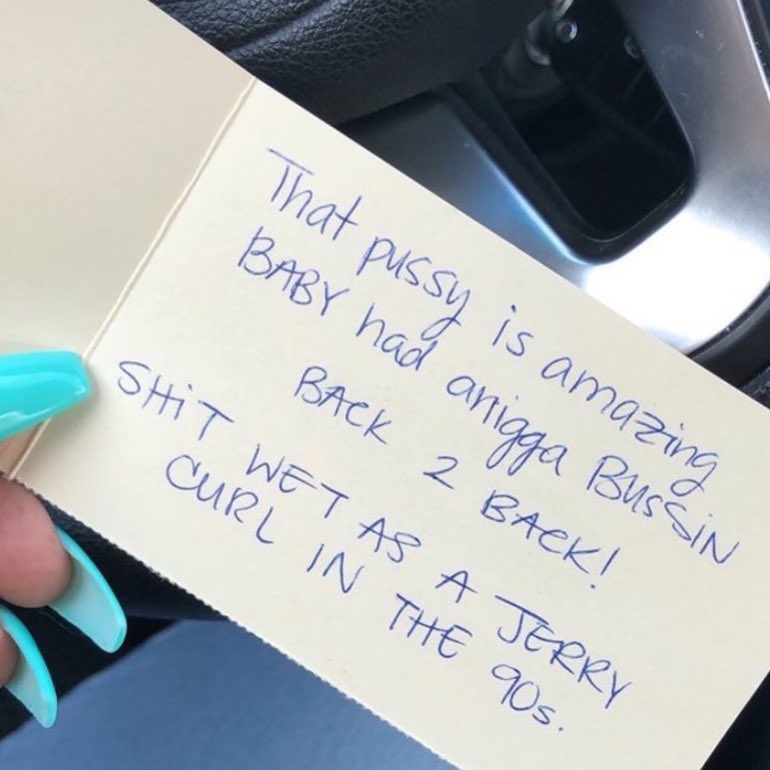 That pussy is amazing
BABY had anigga BUSSIN
BACK 2 BACK!
SHiT WET AS A JERRY
CURL IN THE 90s.